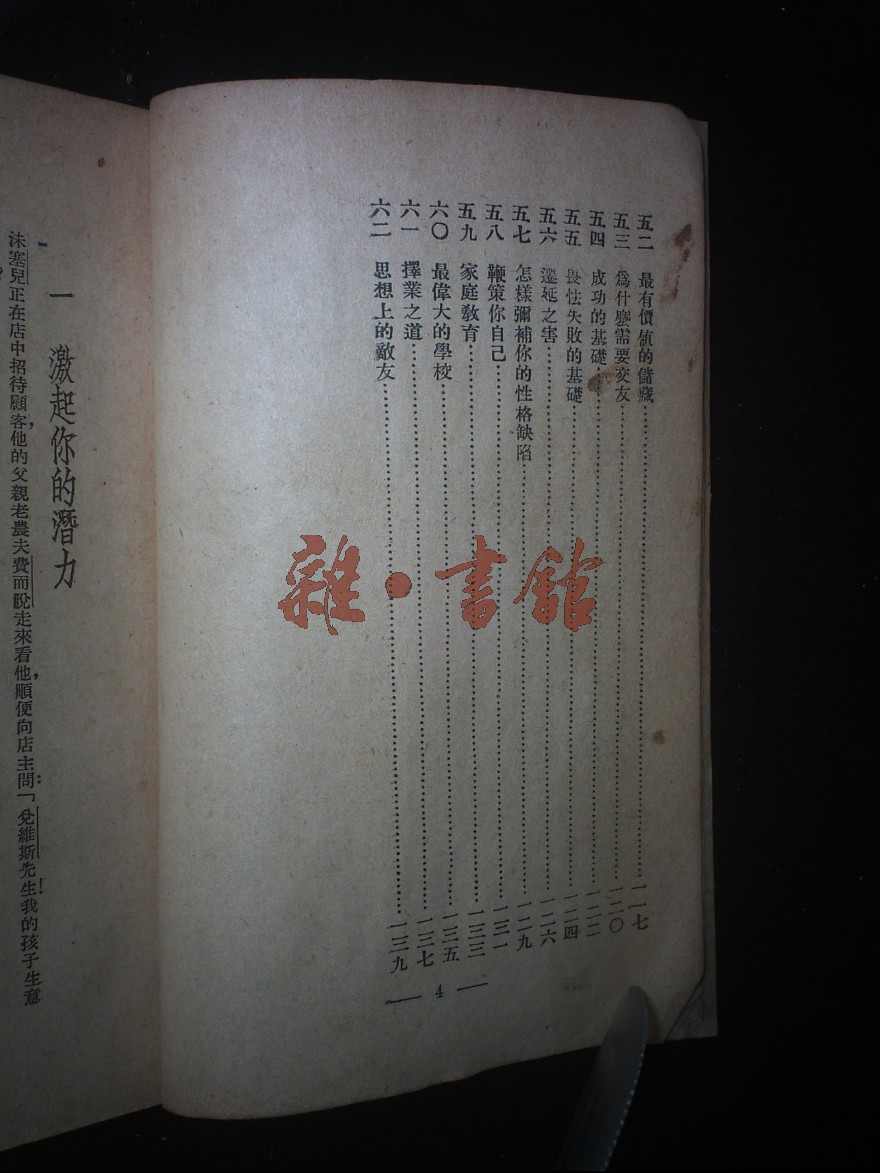 五二 最有價值的儲藏……一一七
五三 爲什麼需要交友……一二〇
五四 成功的基礎……一二二
五五 畏怯失敗的基礎……一二四
五六 遷延之害……一二六
五七 怎樣彌補你的性格缺陷……一二九
五八 鞭策你自己……一三一
五九 家庭教育……一三三
六〇 最偉大的學校……一三五
六一 擇業之道……一三七
六二 思想上的敵友……一三九
— 4 —
雜·書館
一 激起你的潛力
沬塞兒正在店中招待顧客,他的父親老農夫費而脫走來看他,順便向店主問:「兌維斯先生!我的孩子生意